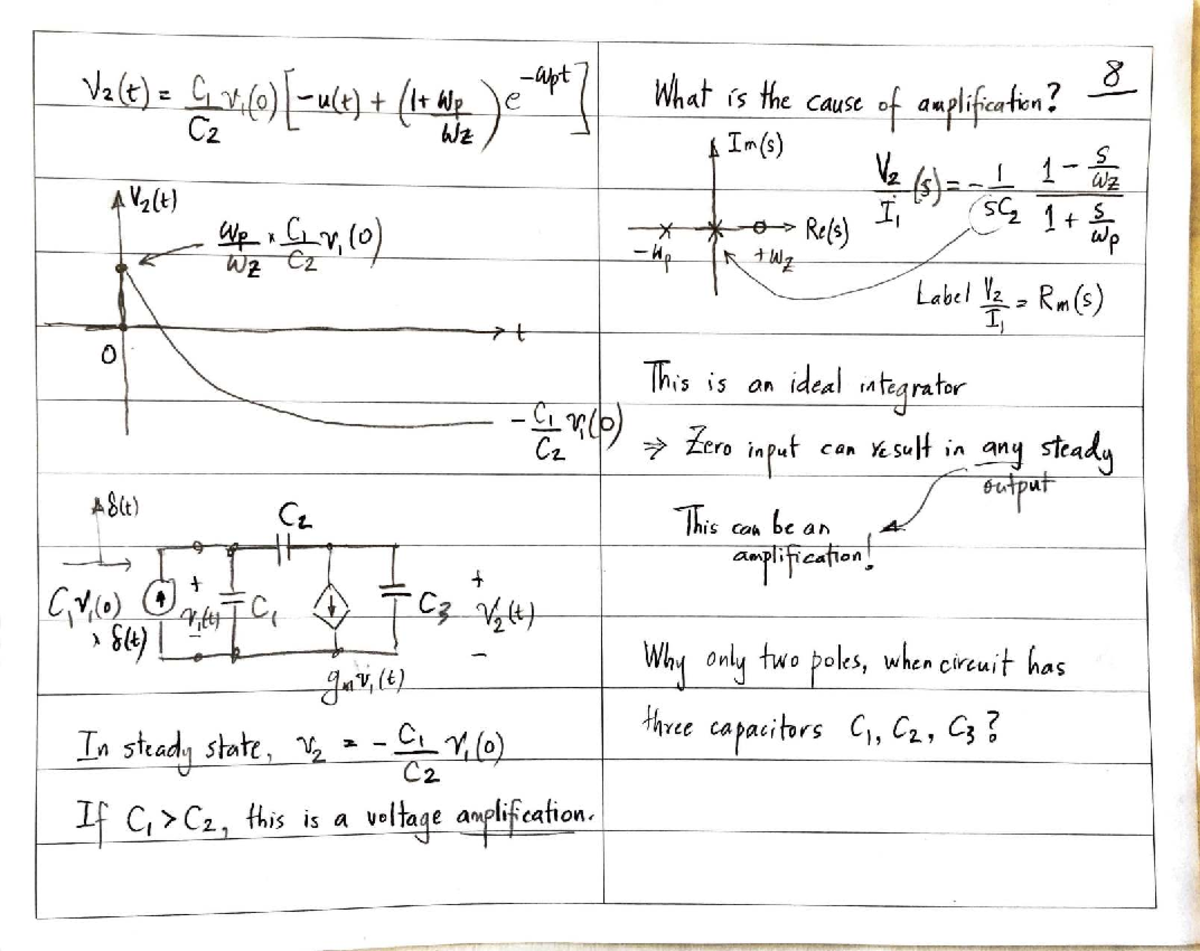 V₂(t) = C₁/C₂ v₁(0) [-u(t) + (1+ ωp/ωz) e^-ωpt]
V₂(t)
ωp/ωz × C₁/C₂ v₁(0)
t
0
-C₁/C₂ v₁(0)
δ(t)
C₂
C₁v₁(0) × δ(t)
+ v₁(t) -
C₁
C₃
+ V₂(t) -
gₘv₁(t)
In steady state, v₂ = - C₁/C₂ v₁(0)
If C₁ > C₂, this is a voltage amplification.
8
What is the cause of amplification?
Im(s)
V₂/I₁ (s) = - 1/sC₂ (1 - s/ωz)/(1 + s/ωp)
Re(s)
-ωp
+ωz
Label V₂/I₁ = Rm(s)
This is an ideal integrator
⇒ Zero input can result in any steady
output
This can be an
amplification!
Why only two poles, when circuit has
three capacitors C₁, C₂, C₃?